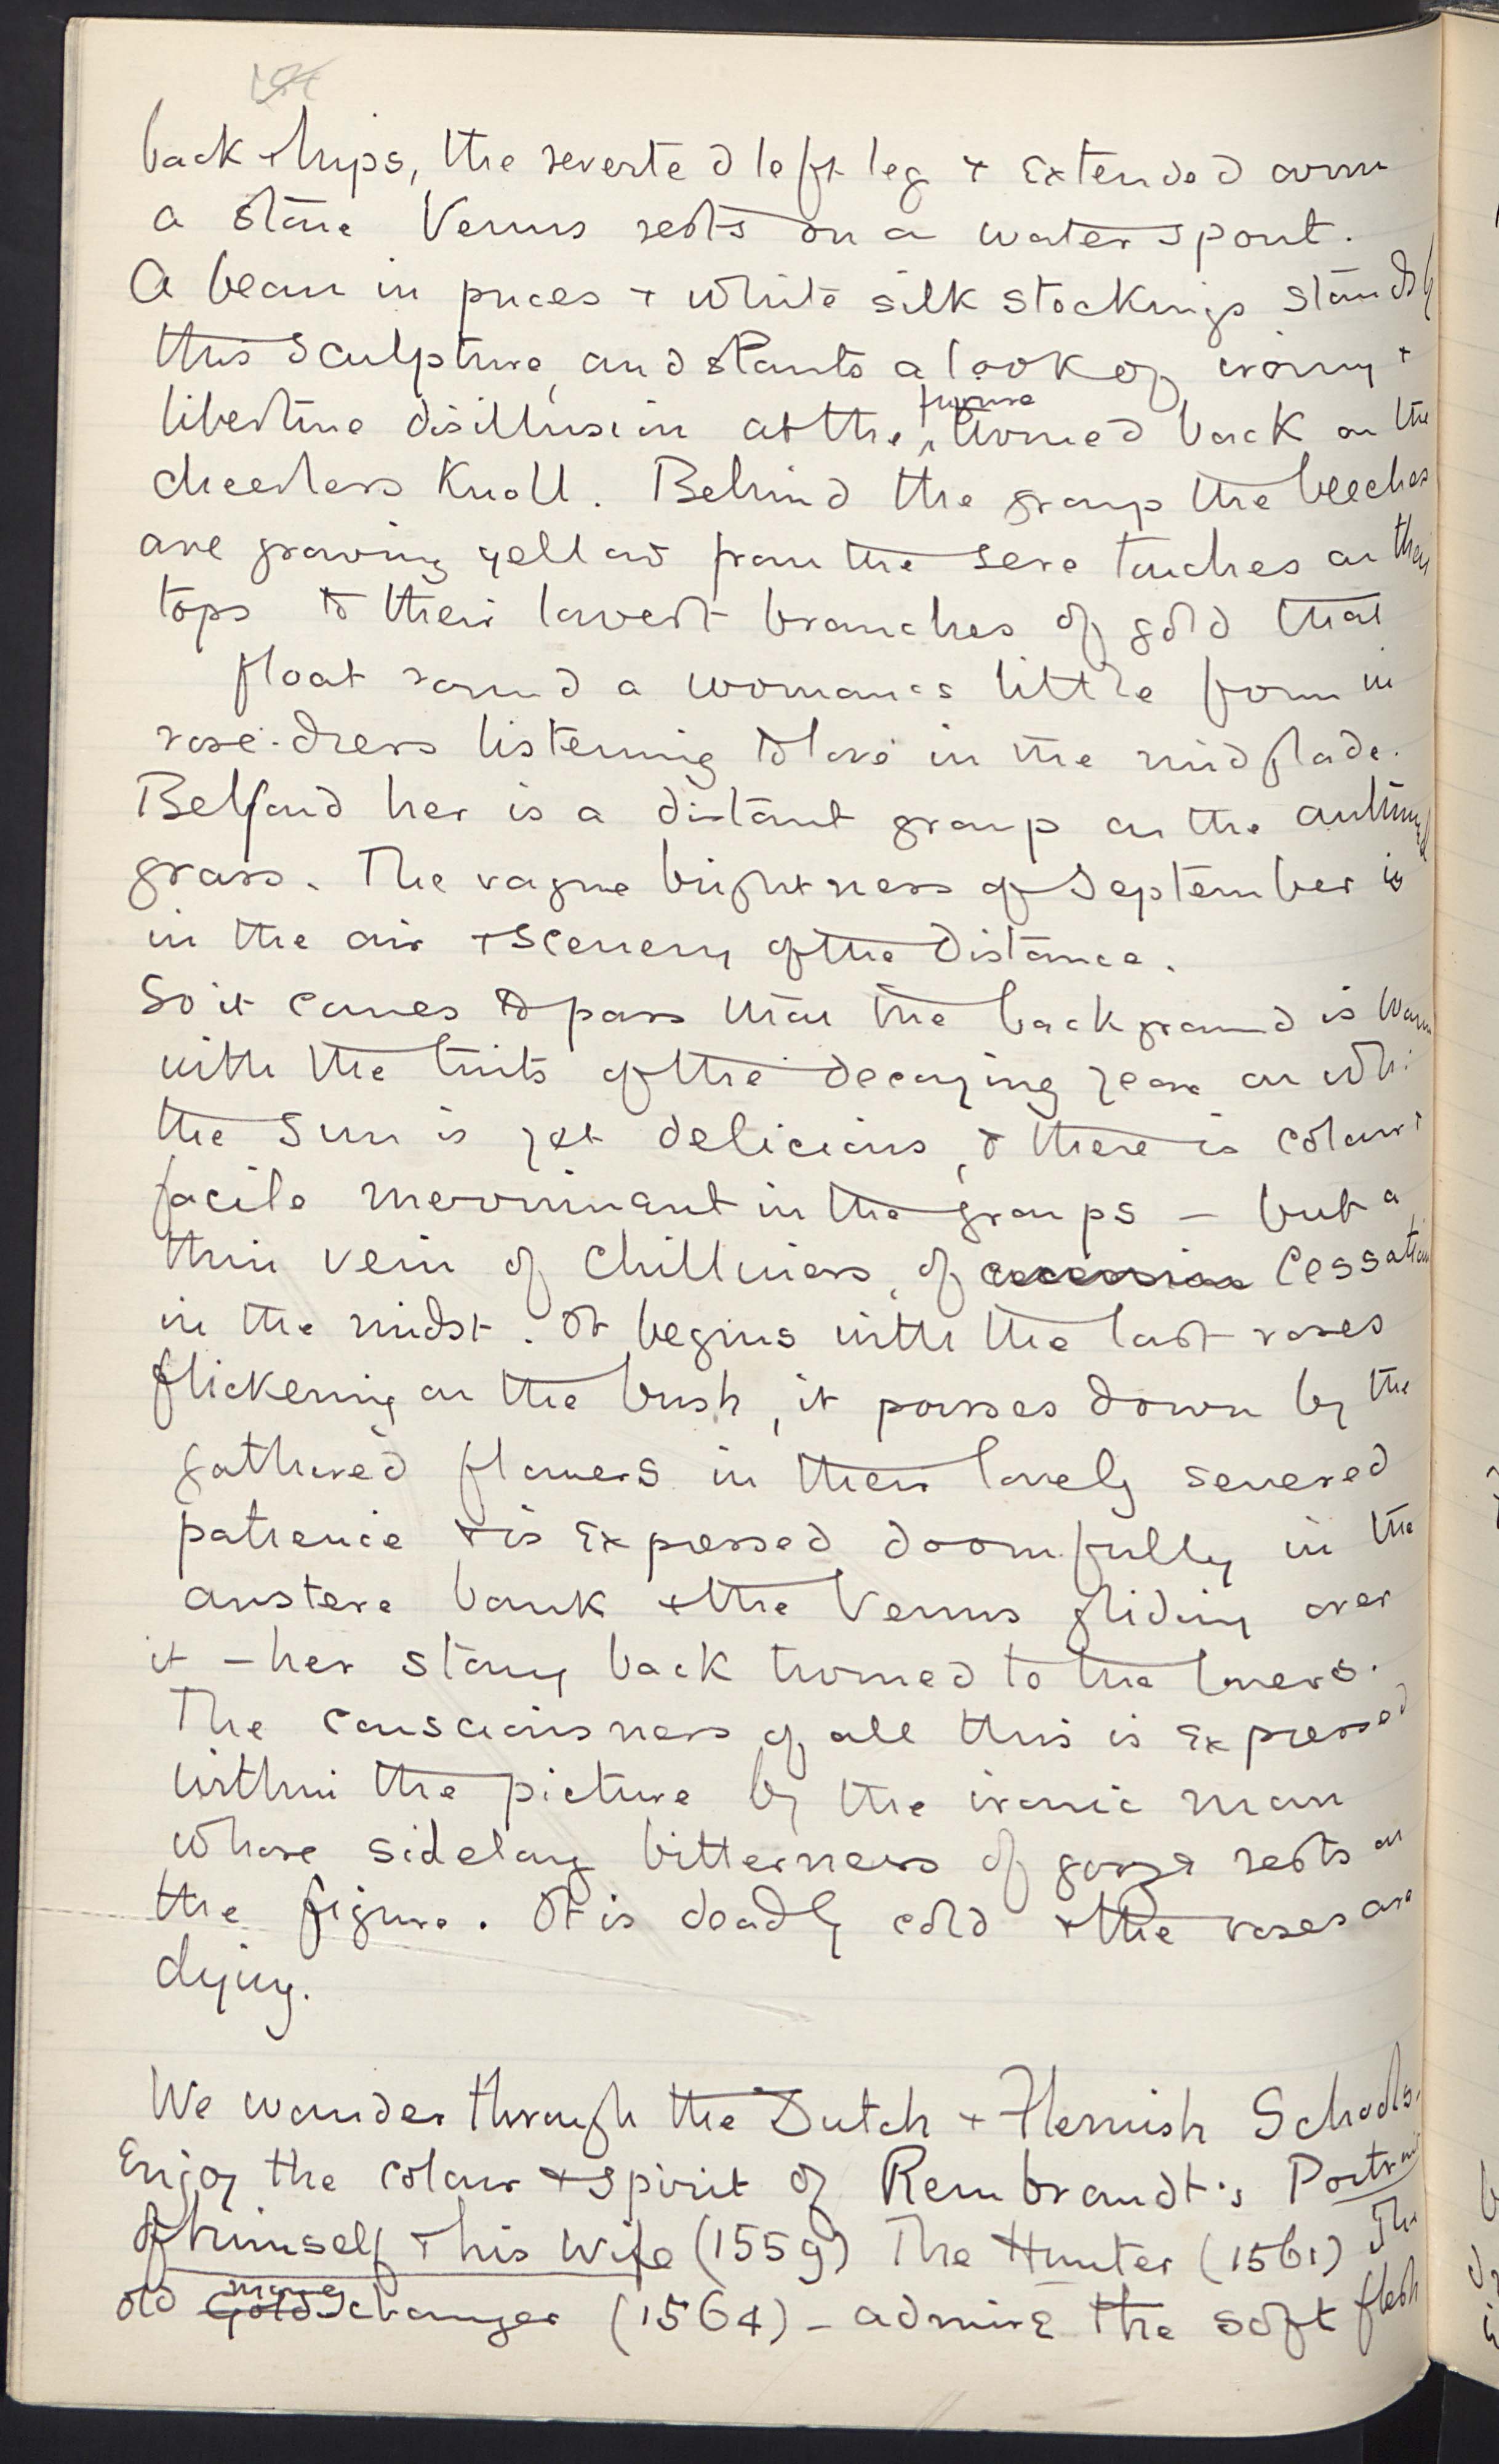 back & hips, the reverted left leg & extended arm
a stone Venus rests on a water spout.
A beau in puces & white silk stockings stands by
this sculpture, and slants a look of irony &
libertine disillusion at the figure turned back on the
cheerless knoll. Behind the group the beeches
are growing yellow from the sere touches on their
tops to their lowest branches of gold that
float round a woman's little form in
rose-dress listening to love in the mid glade.
Beyond her is a distant group on the autumnal
grass. The vague brightness of September is
in the air & scenery of the distance.
So it comes to pass that the background is warm
with the tints of the decaying year on wh:
the sun is yet delicious, & there is colour &
facile movement in the groups – but a
thin vein of chilliness, of cessation
in the midst. It begins with the last roses
flickering on the bush, it passes down by the
gathered flowers in their lovely severed
patience & is expressed doomfully in the
austere bank & the Venus gliding over
it – her stony back turned to the lovers.
The consciousness of all this is expressed
within the picture by the ironic man
whose sidelong bitterness of gaze rests on
the figure. It is deadly cold & the roses are
dying.
We wander through the Dutch & Flemish Schools.
Enjoy the colour & spirit of Rembrandt's Portrait
of himself & his Wife (1559) The Hunter (1561) The
old Gold money changer (1564) – admire the soft flesh